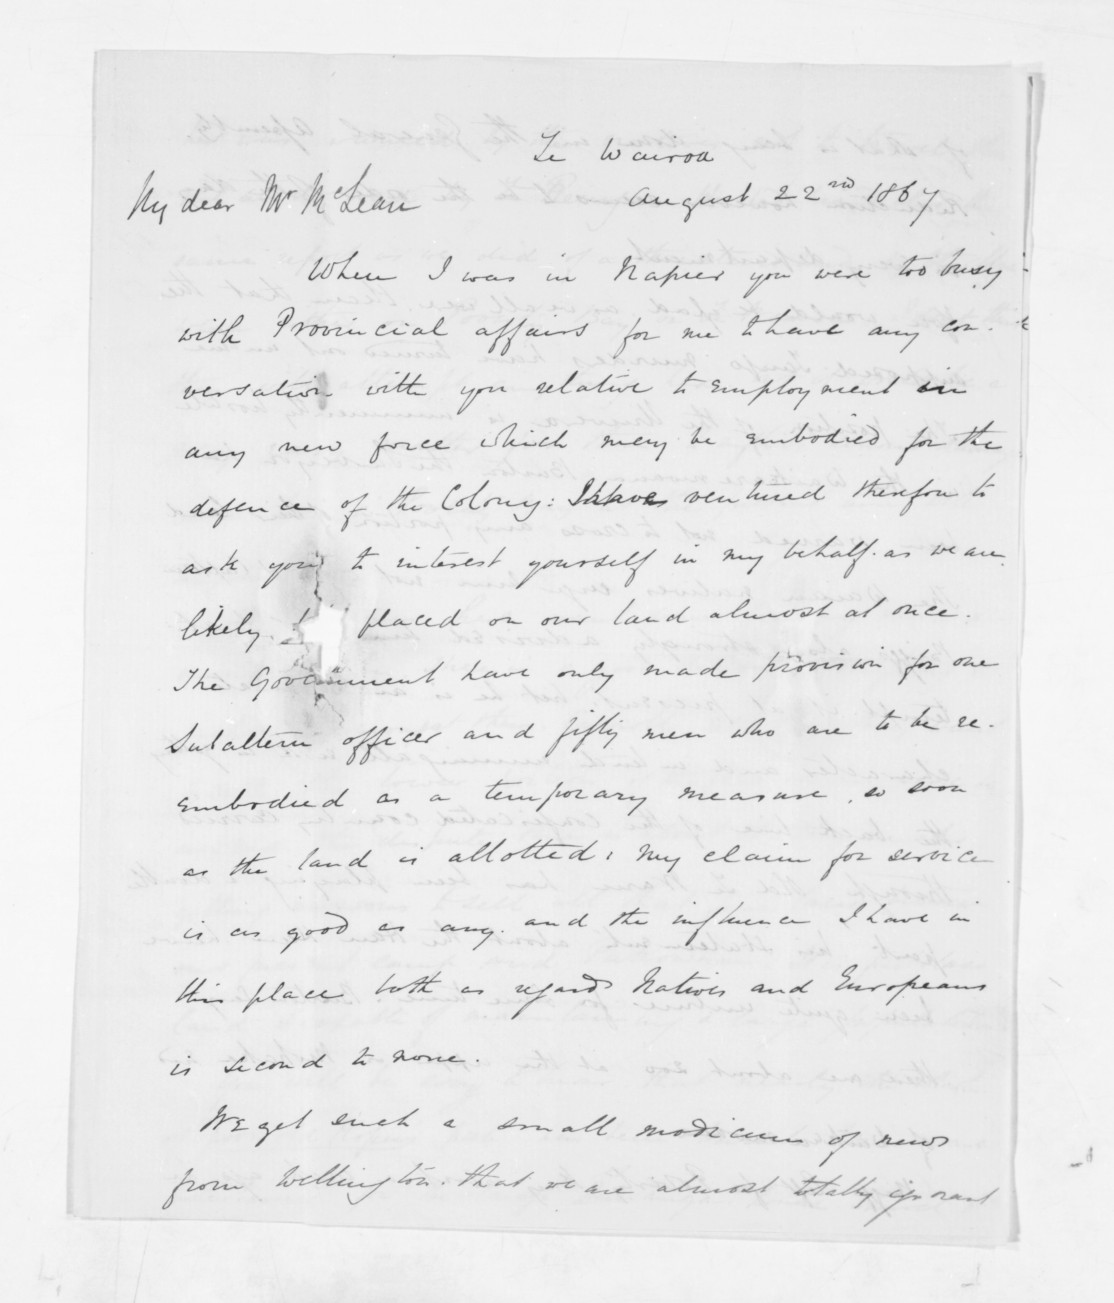 Te Wairoa
August 22nd 1867
My dear Mr McLean
When I was in Napier you were too busy
with Provincial affairs for me to have any con-
versation with you relative to employment in
any new force which may be embodied for the
defence of the Colony: I have ventured therefore to
ask you to interest yourself in my behalf. as we are
likely placed on our land almost at once.
The Government have only made provision for one
Subaltern officer and fifty men who are to be re-
embodied as a temporary measure, so soon
as the land is allotted: my claim for service
is as good as any. and the influence I have in
this place both as regards Natives and Europeans
is second to none.
We get such a small modicum of news
from Wellington. that we are almost totally ignorant